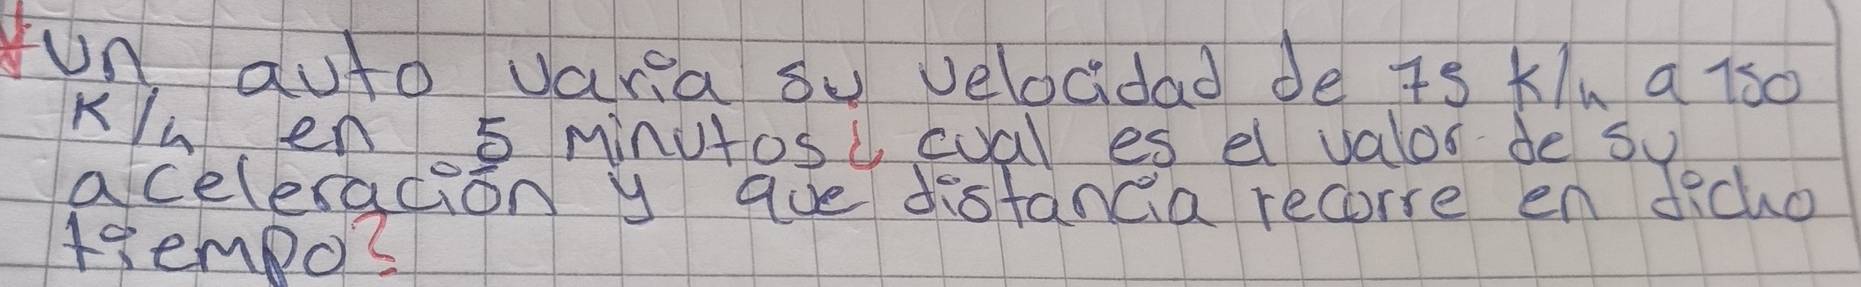 Un auto varia su velocidad de 75 k/h a 150
K/h en 5 Minutos¿ cual es el valor de su
aceleración y que distancia recorre en dicho
tiempo?